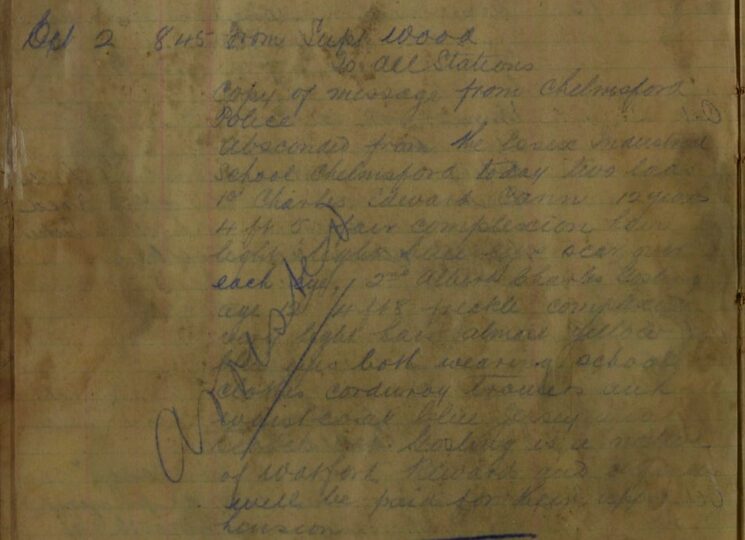 2 8.45 from Supt. Wood
To All Stations
Copy of message from Chelmsford
Police
Absconded from the Essex Industrial
School Chelmsford today two lads
1st Charles Edward Cann 12 years
4 ft 5 fair complexion hair
light slight scar near
each eye. 2nd Albert Charles Gosling
age 4 ft 8 freckle complexion
light hair almost yellow
both wearing school
clothes corduroy trousers and
waistcoat blue jersey
Gosling is a native
of Watford Reward and
will be paid for their appre
hension
Arrested